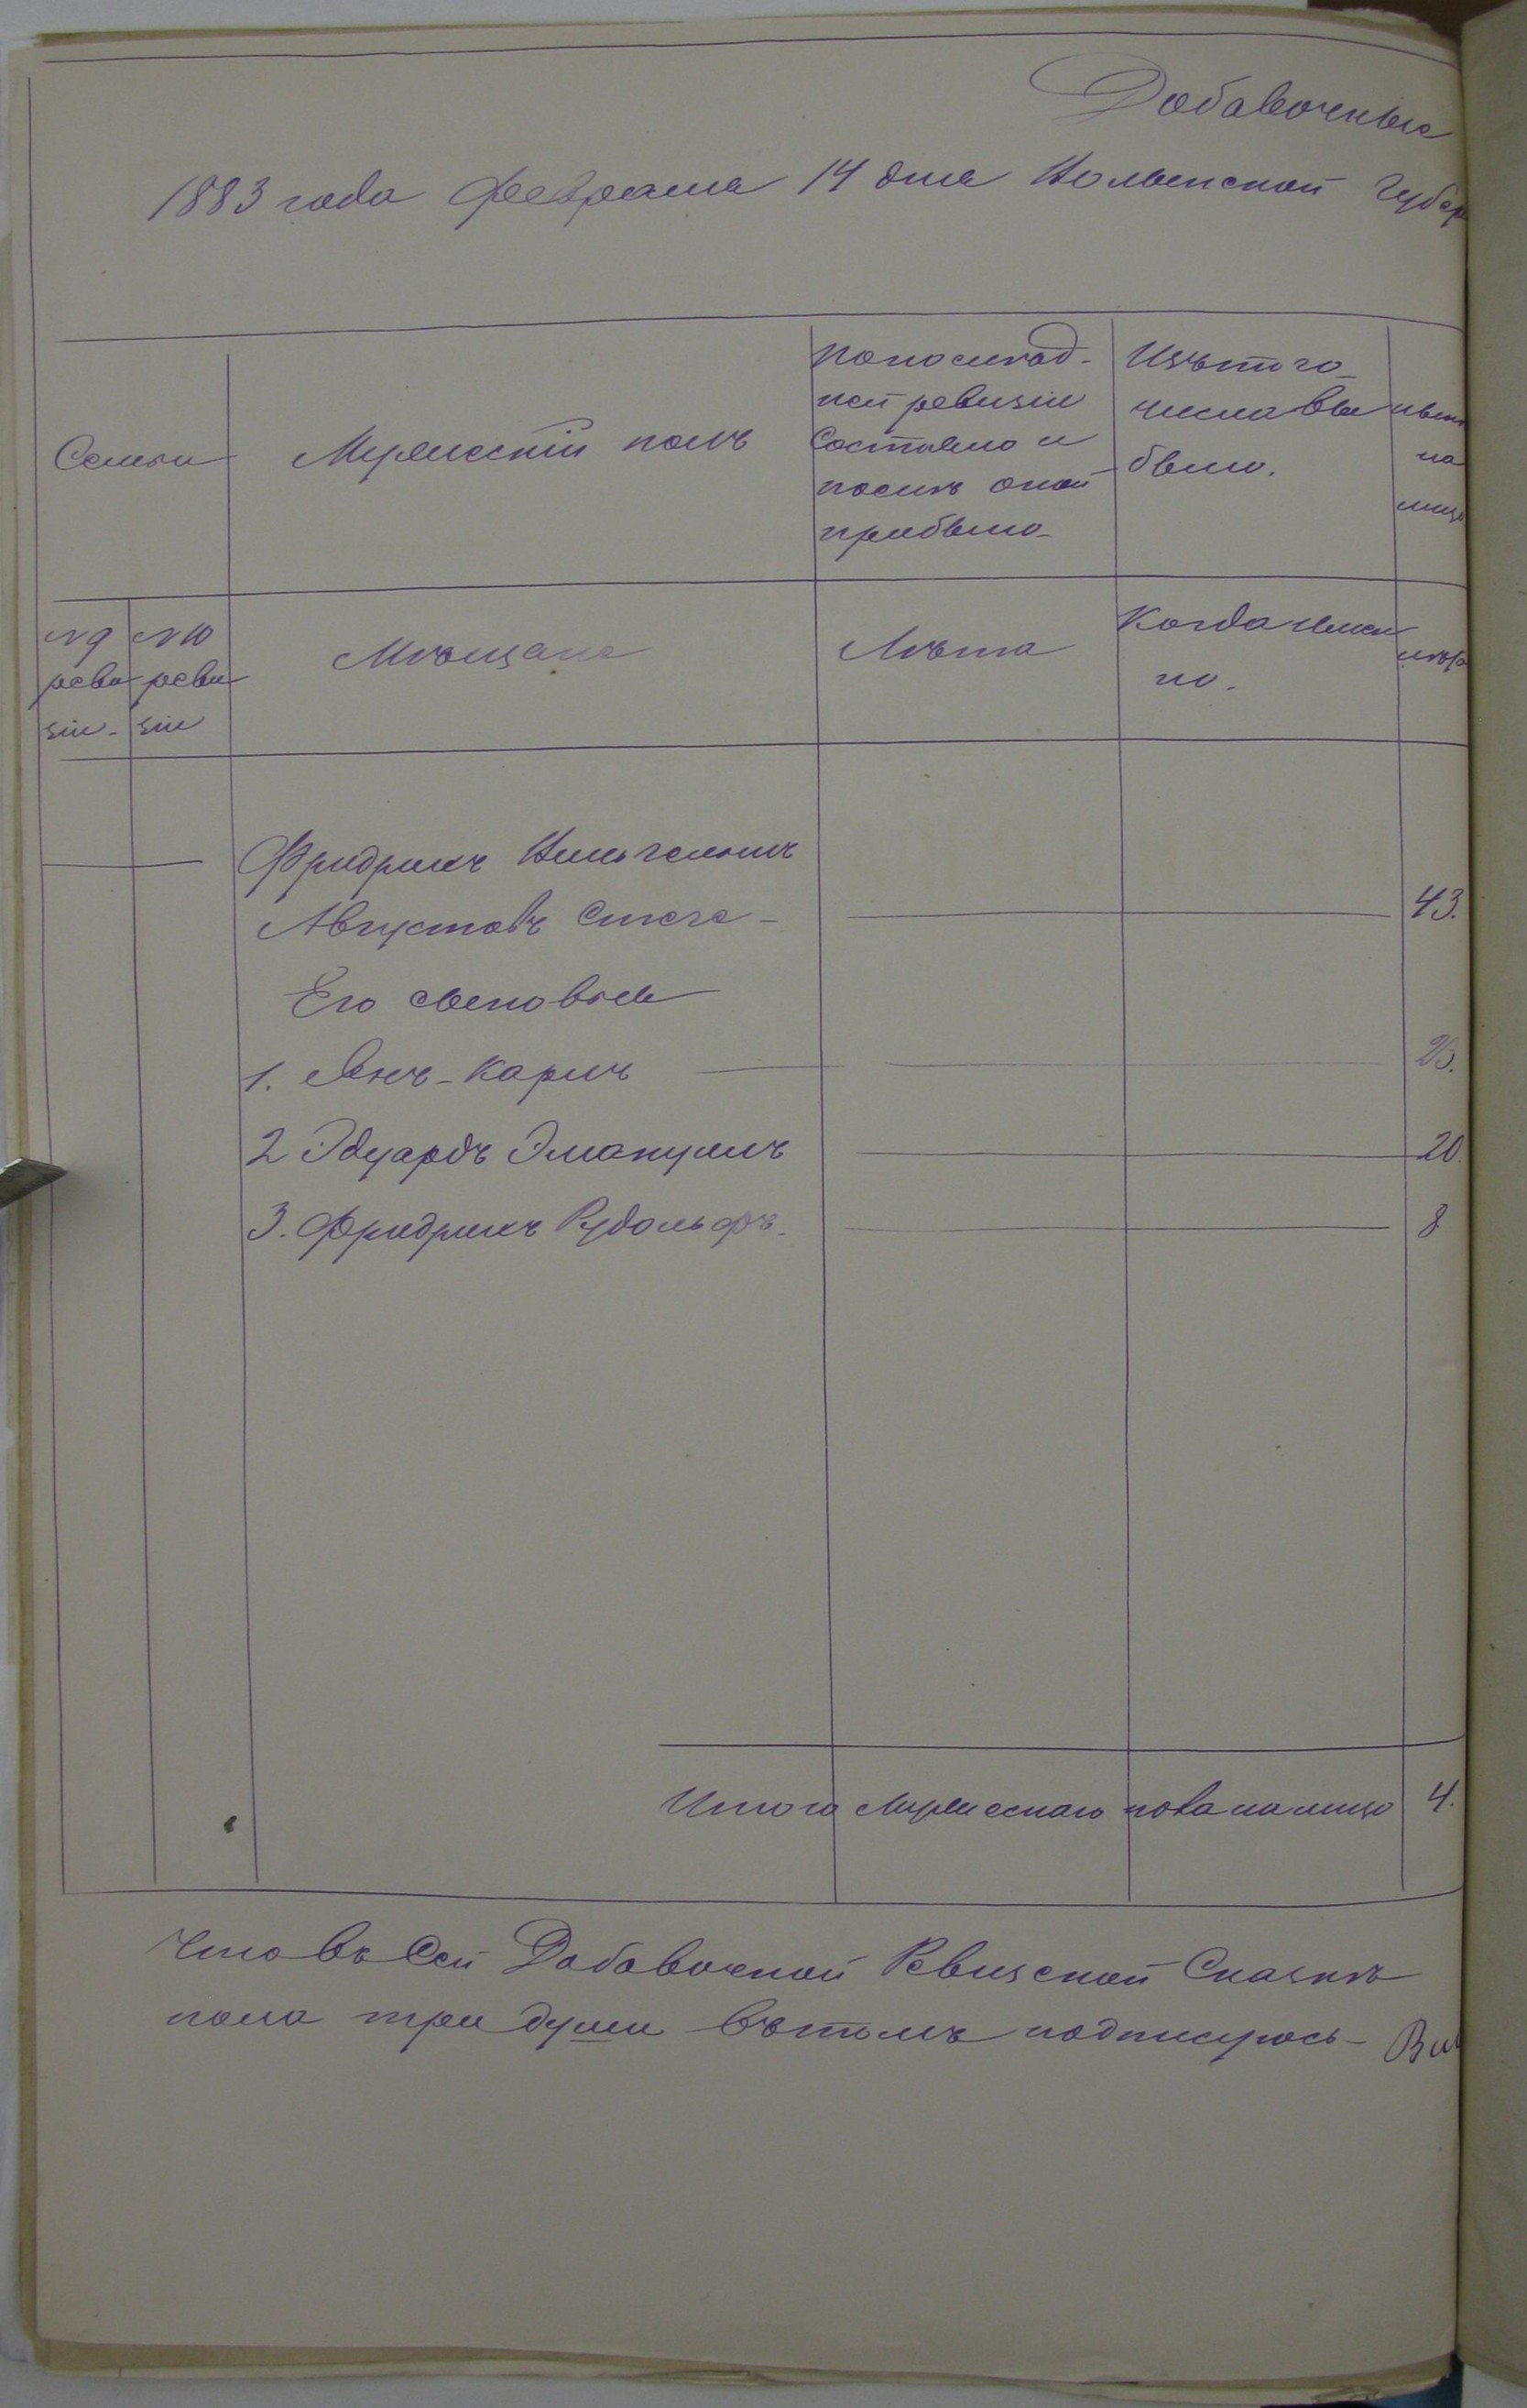 Добавочные
1883 года Февраля 14 дня Волынской Губер
Семьи
Мужескій полъ
По послѣд-
ней ревизіи
состояло и
послѣ оной
прибыло
Изъ того
числа вы
было.
нынѣ
на
лицо
№ 9
реви
зіи
№ 10
реви
зіи
Мѣщане
Лѣта
Когда имен
но.
лѣта
Фридрихъ Вильгельмъ
Августовъ
43.
Его сыновья
1. Карлъ
2 Эдуардъ Эмануилъ
20.
3. Фридрихъ Рудольфъ.
8
Итого мужескаго пола на лицо 4.
Что въ Сей Добавочной Ревизской Сказкѣ
пола три души въ томъ подписуюсь-